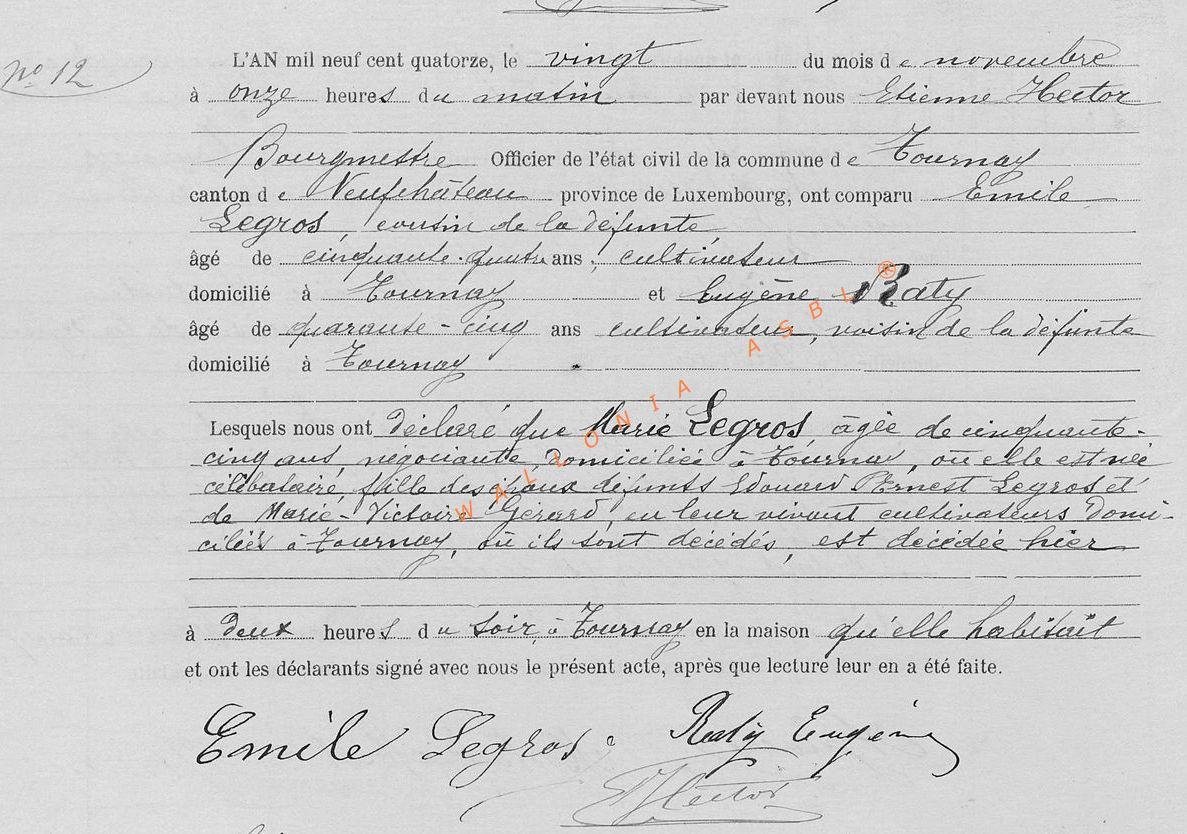 no 12
L'AN mil neuf cent quatorze, le vingt du mois de novembre
à onze heures du matin par devant nous Etienne Hector
Bourgmestre Officier de l'état civil de la commune de Tournay
canton de Neufchâteau province de Luxembourg, ont comparu Emile
Legros, cousin de la défunte
âgé de cinquante-quatre ans, cultivateur
domicilié à Tournay et Eugène Baty
âgé de quarante-cinq ans cultivateur, voisin de la défunte
domicilié à Tournay
Lesquels nous ont déclaré que Marie Legros, âgée de cinquante-
cinq ans, négociante, domiciliée à Tournay, où elle est née
célibataire, fille des époux défunts Edouard Ernest Legros et
de Marie-Victoire Gerard, en leur vivant cultivateurs domi-
ciliés à Tournay, où ils sont décédés, est décédée hier
à deux heures du soir, à Tournay en la maison qu'elle habitait
et ont les déclarants signé avec nous le présent acte, après que lecture leur en a été faite.
Emile Legros Baty Eugène
E Hector
WALLONIA ASBL ®